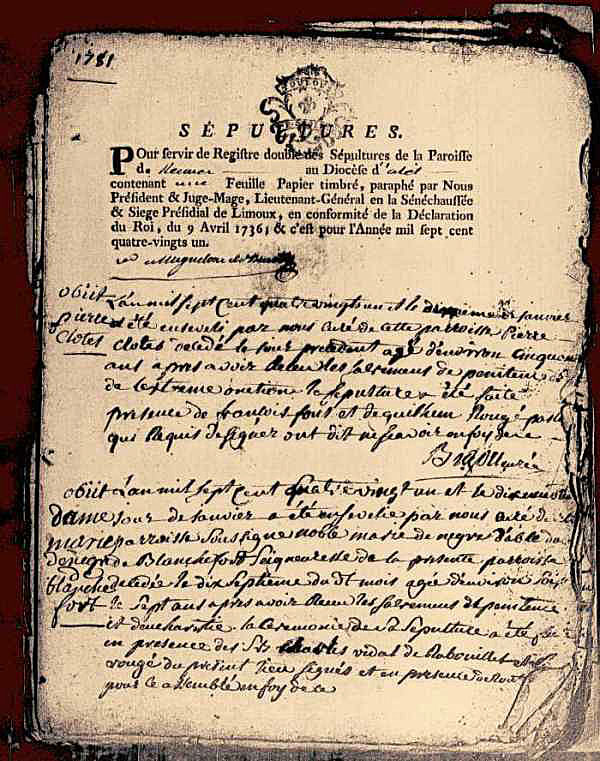 1781
SÉPULTURES.
POur servir de Registre double des Sépultures de la Paroisse
de Rennes au Diocèse d'alet
contenant une Feuille Papier timbré, paraphé par Nous
Président & Juge-Mage, Lieutenant-Général en la Sénéchaussée
& Siege Présidial de Limoux, en conformité de la Déclaration
du Roi, du 9 Avril 1736, & c'est pour l'Année mil sept cent
quatre-vingts un.
obiit L'an mil sept cent quatre vingt un et le janvier
pierre a été enseveli par nous curé de cette parroisse pierre
clotes clotes decedé le jour precedent agé d'environ cinquante
ans apres avoir receu les sacremens de penitence
de l'extreme onction la sepulture a été faite
presence de francois font et de guilhem Rougé
qui Requis de signer ont dit ne scavoir en foy de ce
curé
obiit L'an mil sept cent quatre vingt un et le
dame jour de janvier a été ensevelie par nous curé de
marie parroisse soussigné noble marie de negre d'able
denegri de Blanchefort seigneuresse de la presente parroisse
blanche decedée le dix septieme du dt mois agée d'environ
fort sept ans apres avoir receu les sacremens de penitence
et d'eucharistie la ceremonie de sa sepulture a été
en presence des srs charles vidal de Rabouillet
rougé du present lieu signés et en presence de
pour ce assemblé en foy de ce